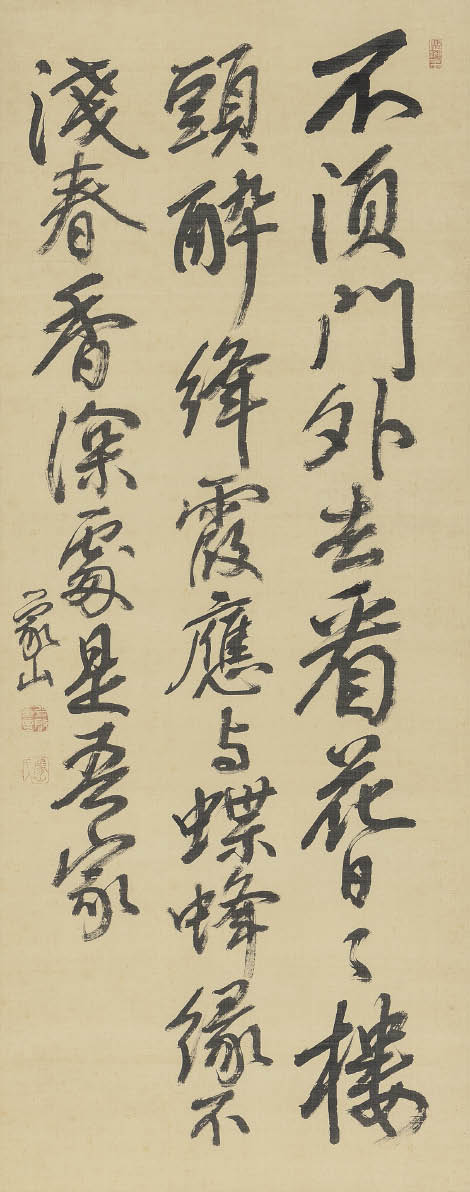 不須門外去看花日々樓
頭醉絳霞應与蝶蜂緣不
淺春香深處是吾家
象山